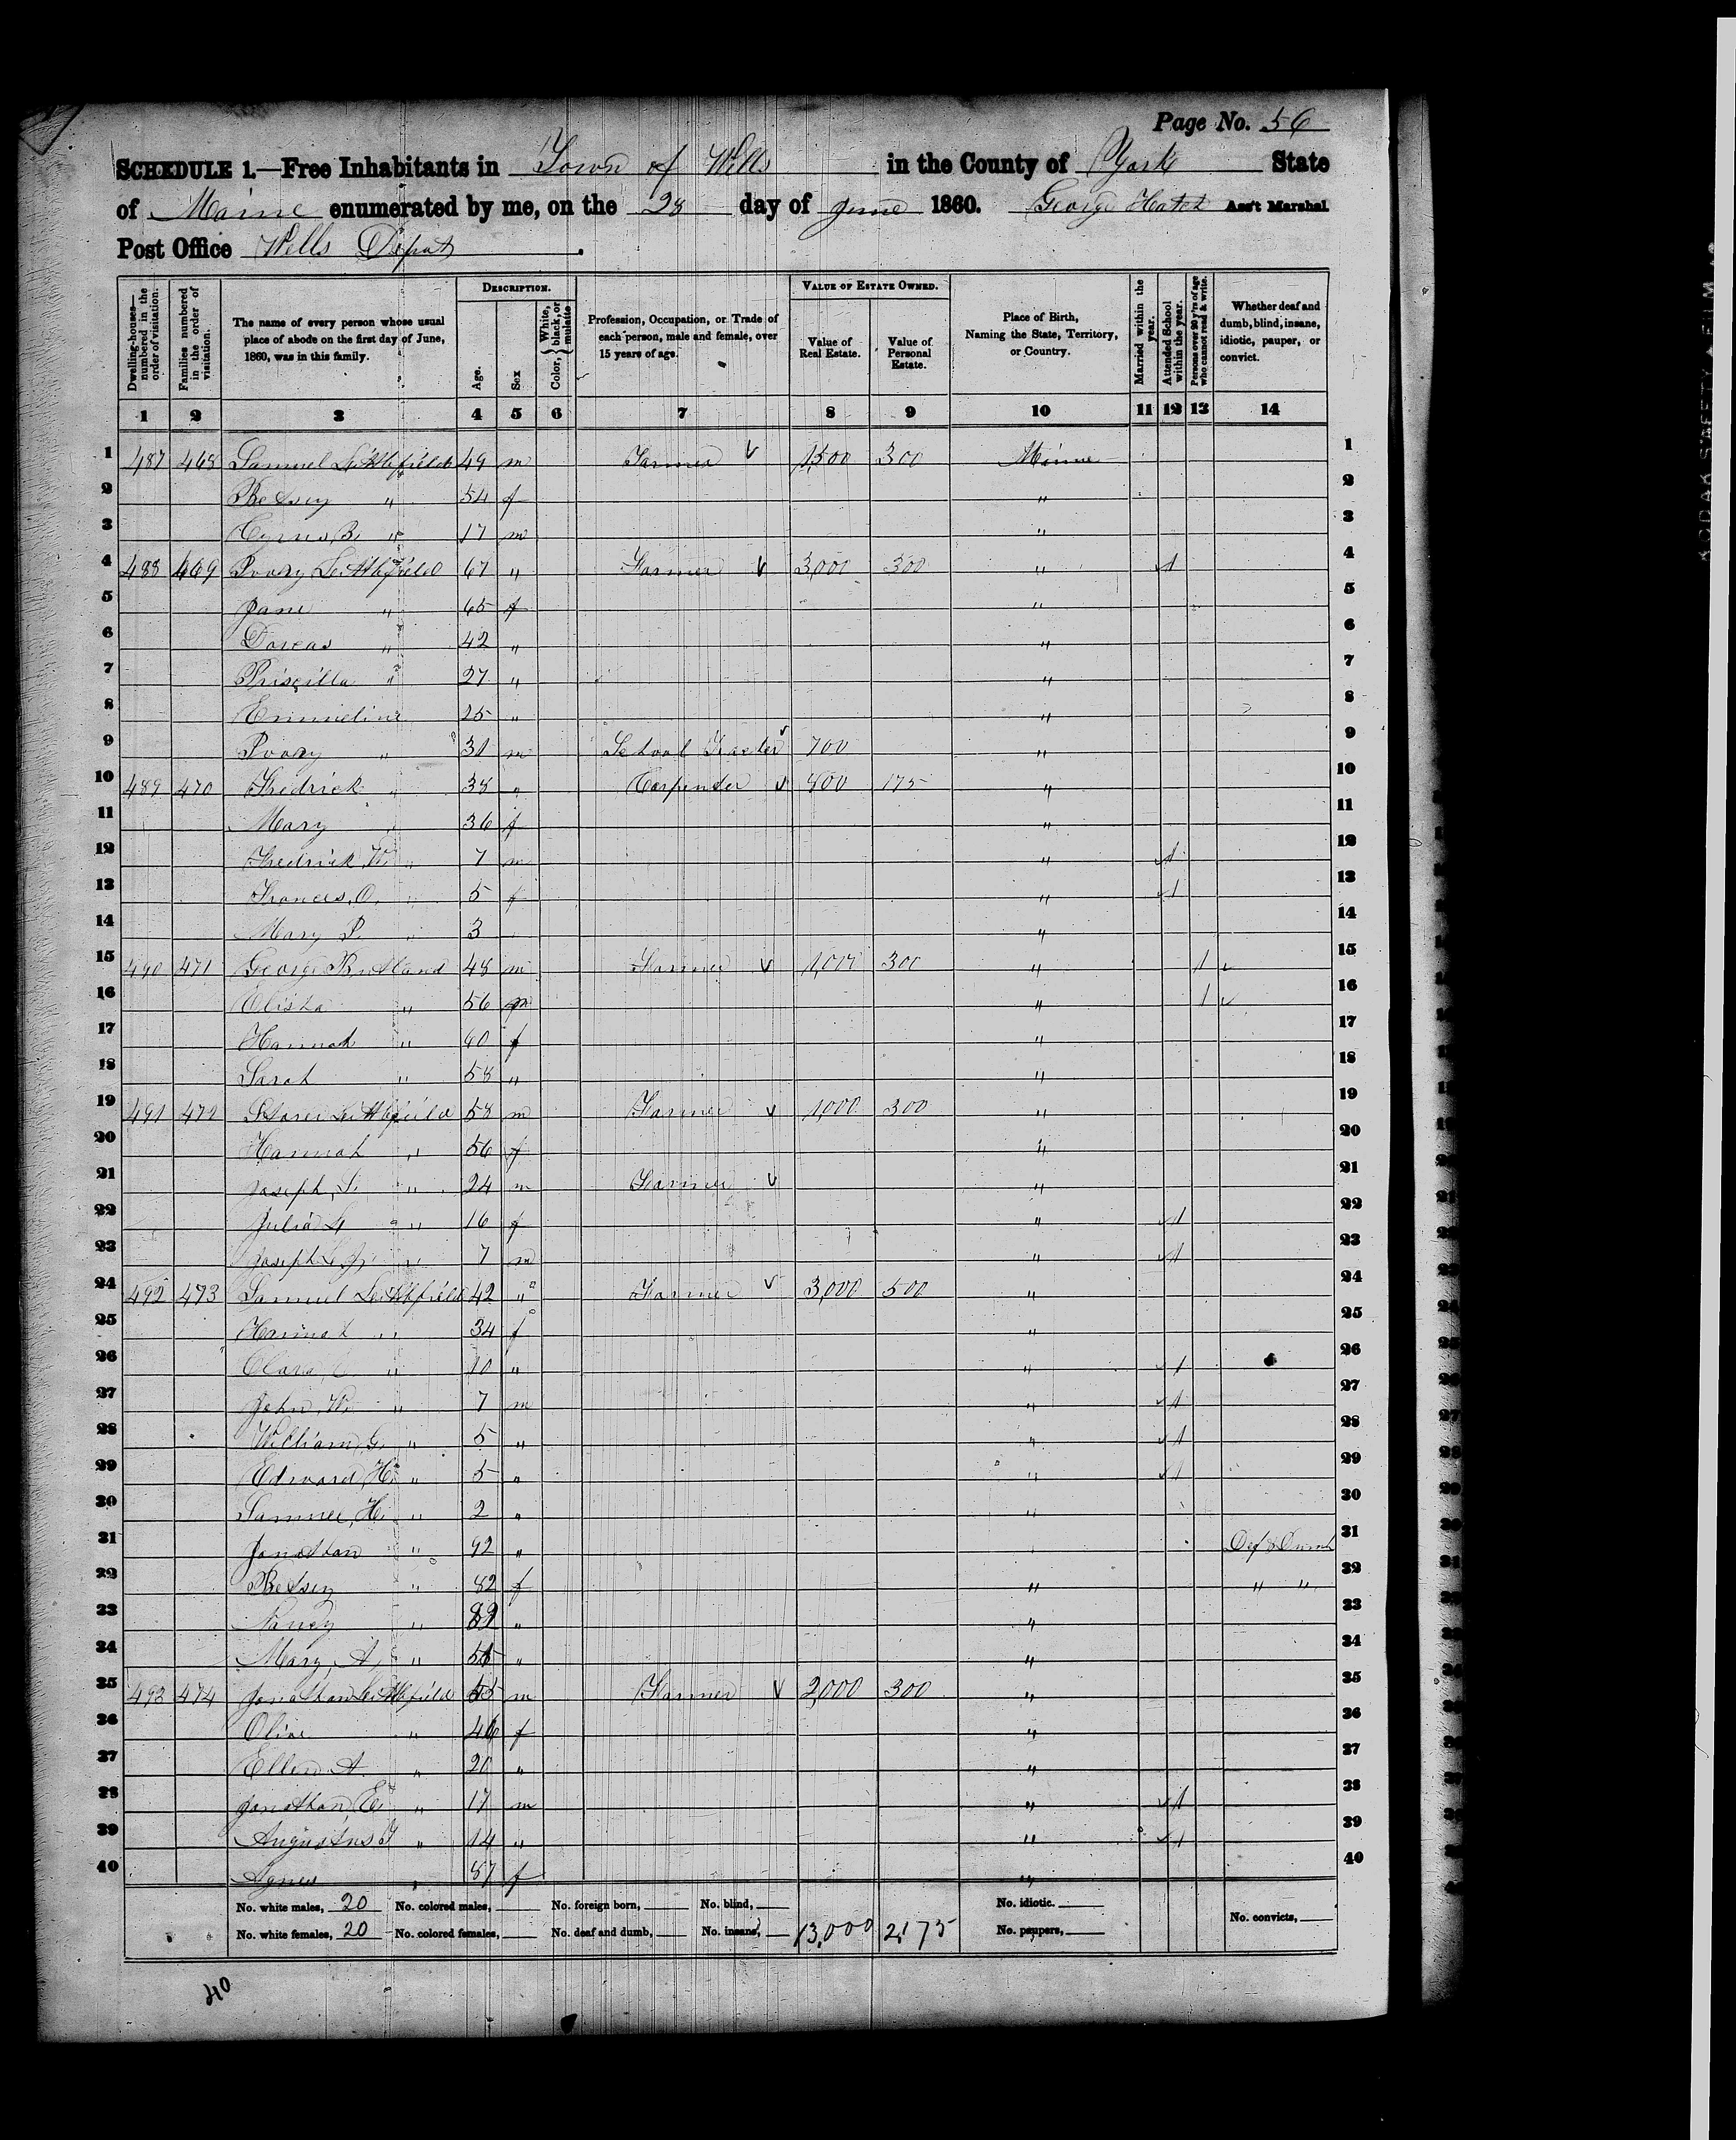 Page No. 56
SCHEDULE 1.—Free Inhabitants in Town of Wells in the County of York State
of Maine enumerated by me, on the 28 day of June 1860. George Hatch Ass't Marshal
Post Office Wells Depot.
Dwelling-houses—numbered in the order of visitation. Families numbered in the order of visitation. The name of every person whose usual place of abode on the first day of June, 1860, was in this family. DESCRIPTION. Age. Sex Color, { White, black, or mulatto Profession, Occupation, or Trade of each person, male and female, over 15 years of age. VALUE OF ESTATE OWNED. Value of Real Estate. Value of Personal Estate. Place of Birth, Naming the State, Territory, or Country. Married within the year. Attended School within the year. Persons over 20 y'rs of age who cannot read & write. Whether deaf and dumb, blind, insane, idiotic, pauper, or convict.
1 2 3 4 5 6 7 8 9 10 11 12 13 14
1 487 468 Samuel Littlefield 49 m Farmer 1,500 300 Maine 1
2 Betsey " 54 f " 2
3 Cyrus B. " 17 m " 3
4 488 469 Ivory Littlefield 67 " Farmer 3,000 300 " 1 4
5 Jane " 65 f " 5
6 Dorcas " 42 " " 6
7 Priscilla " 27 " " 7
8 Emmeline 25 " " 8
9 Ivory " 31 m School Teacher 700 " 9
10 489 470 Fredrick " 38 " Carpenter 800 175 " 10
11 Mary " 36 f " 11
12 Fredrick W. " 7 m " 1 12
13 Frances, O. " 5 f " 1 13
14 Mary P. " 3 " 14
15 490 471 George Butland 48 m Farmer 1,000 300 " 1 15
16 Elisha " 56 m " 1 16
17 Hannah " 60 f " 17
18 Sarah " 58 " " 18
19 491 472 Storer Littlefield 58 m Farmer 1,000 300 " 19
20 Hannah " 56 f " 20
21 Joseph, S. " 24 m Farmer " 21
22 Julia G " 16 f " 1 22
23 Joseph " 7 m " 1 23
24 492 473 Samuel Littlefield 42 " Farmer 3,000 500 " 24
25 Hannah " 34 f " 25
26 Clara, " 10 " " 1 26
27 John, W. " 7 m " 1 27
28 William, G. " 5 " " 1 28
29 Edward, H. " 5 " " 1 29
30 Sumner, H. " 2 " " 30
31 Jonathan " 92 " Def & Dumb 31
32 Betsey " 82 f " " " 32
33 Nancy " 89 " " 33
34 Mary, A, " " " 34
35 493 474 Jonathan Littlefield 55 m Farmer 2,000 300 " 35
36 Olive " 46 f " 36
37 Ellen A " 20 " " 37
38 Jonathan, E. " 17 m " 1 38
39 Augustus J " 14 " " 1 39
40 Agnes " 87 f " 40
No. white males, 20 No. colored males, No. foreign born, No. blind, No. idiotic.
No. white females, 20 No. colored females, No. deaf and dumb, No. insane, 13,000 2,175 No. paupers, No. convicts,
40